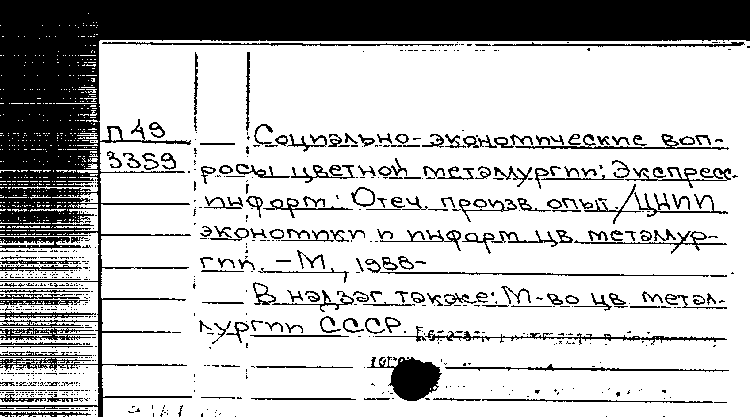 П 49
3359
Социально-экономические воп-
росы цветной металлургии: Экспресс-
информ.: Отеч. произв. опыт / ЦНИИ
экономики и информ. цв. металлур-
гии. – М., 1988-
В надзаг. также: М-во цв. метал-
лургии СССР.